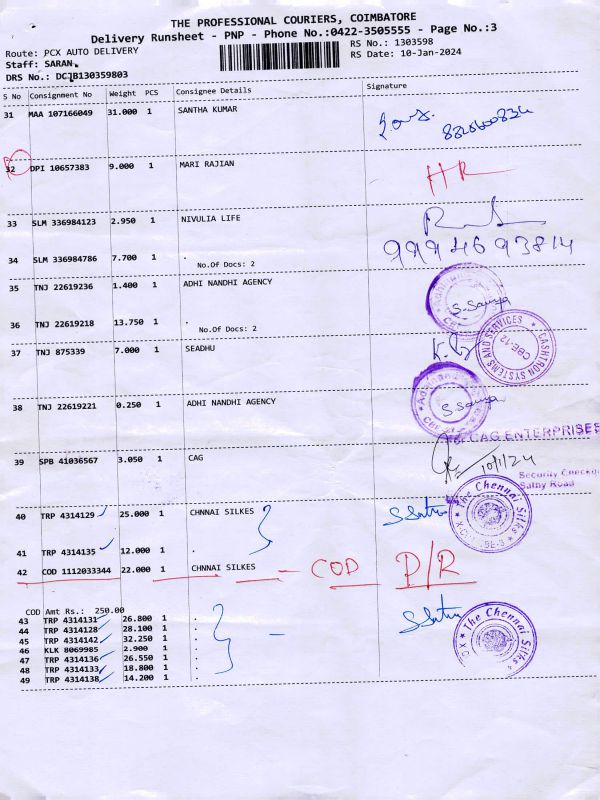 THE PROFESSIONAL COURIERS, COIMBATORE
Delivery Runsheet - PNP - Phone No.:0422-3505555 - Page No.:3
Route: PCX AUTO DELIVERY
RS No.: 1303598
Staff: SARAN.
RS Date: 10-Jan-2024
DRS No.: DCJB130359803
S No Consignment No Weight PCS Consignee Details Signature
31 MAA 107166049 31.000 1 SANTHA KUMAR
32 DPI 10657383 9.000 1 MARI RAJIAN
33 SLM 336984123 2.950 1 NIVULIA LIFE
9994693814
34 SLM 336984786 7.700 1 .
No.Of Docs: 2
35 TNJ 22619236 1.400 1 ADHI NANDHI AGENCY
36 TNJ 22619218 13.750 1 .
No.Of Docs: 2
CASHTRON SYSTEMS AND SERVICES
CBE-12
37 TNJ 875339 7.000 1 SEADHU
38 TNJ 22619221 0.250 1 ADHI NANDHI AGENCY
CAG ENTERPRISES
39 SPB 41036567 3.050 1 CAG
10/1/24
40 TRP 4314129 25.000 1 CHNNAI SILKES
The Chennai Silks
41 TRP 4314135 12.000 1 .
42 COD 1112033344 22.000 1 CHNNAI SILKES - COD P/R
COD Amt Rs.: 250.00
43 TRP 4314131 26.800 1 .
44 TRP 4314128 28.100 1 .
45 TRP 4314142 32.250 1 .
46 KLK 8069985 2.900 1 .
47 TRP 4314136 26.550 1 .
48 TRP 4314133 18.800 1 .
49 TRP 4314138 14.200 1 .
The Chennai Silks